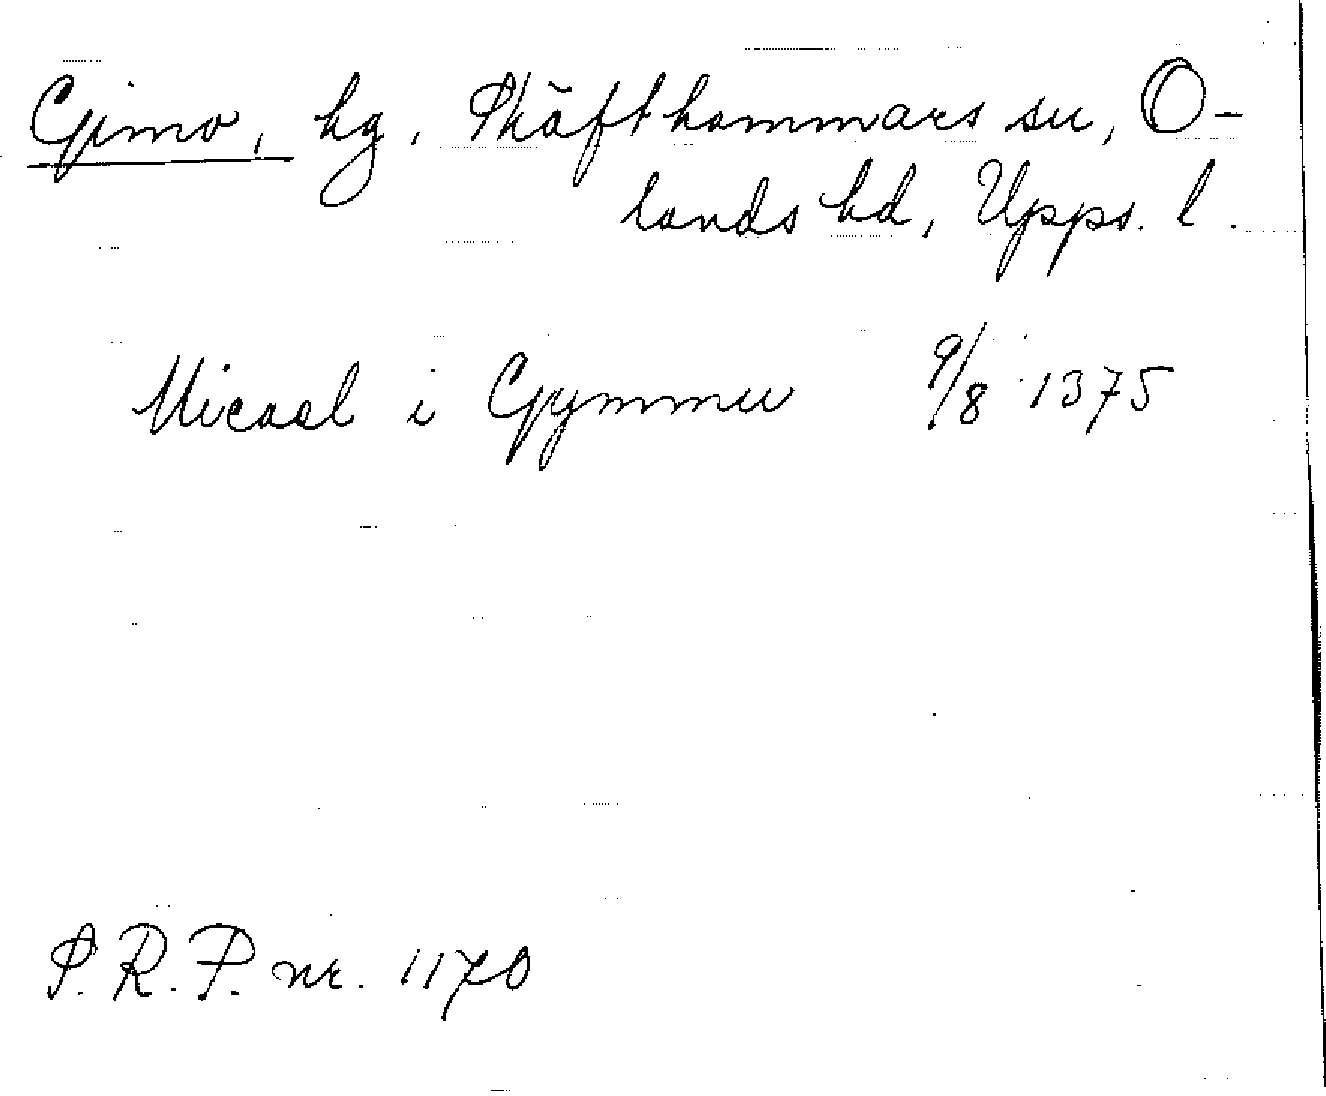 Gimo, hg, Skäfthammars sn, O-
lands hd, Upps. l.
Micael i Gymmu 9/8 1375
S.R.P. nr. 1170